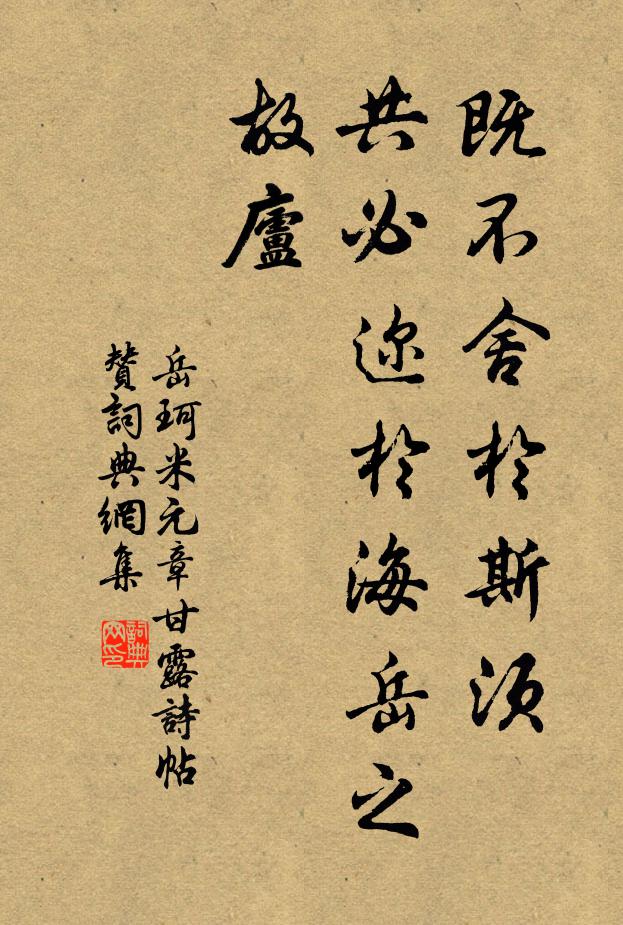 既不舍於斯須
共必迩於海岳之
故廬
岳珂米元章甘露詩帖
賛詞典網集
詞典
网印